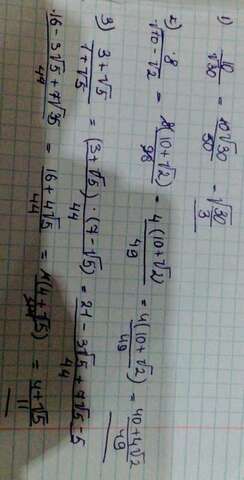 1) 10/√30 = 10√30/30 = √30/3
2) 8/(10-√2) = 8(10+√2)/98 = 4(10+√2)/49 = 4(10+√2)/49 = (40+4√2)/49
3) (3+√5)/(7+√5) = (3+√5)·(7-√5)/44 = (21-3√5+7√5-5)/44
(16-3√5+7√5)/44 = (16+4√5)/44 = 4(4+√5)/44 = (4+√5)/11